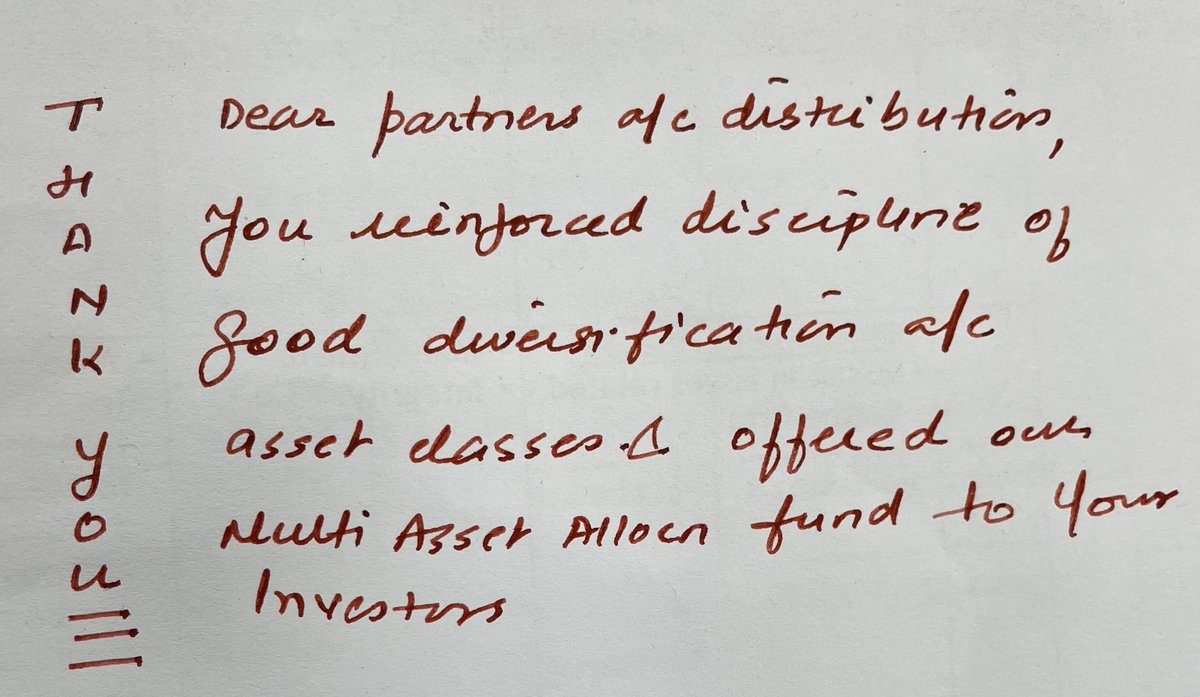 THANK YOU
Dear partners a/c distribution,
You reinforced discipline of
good diversification a/c
asset classes & offered our
Multi Asset Allocn fund to your
Investors